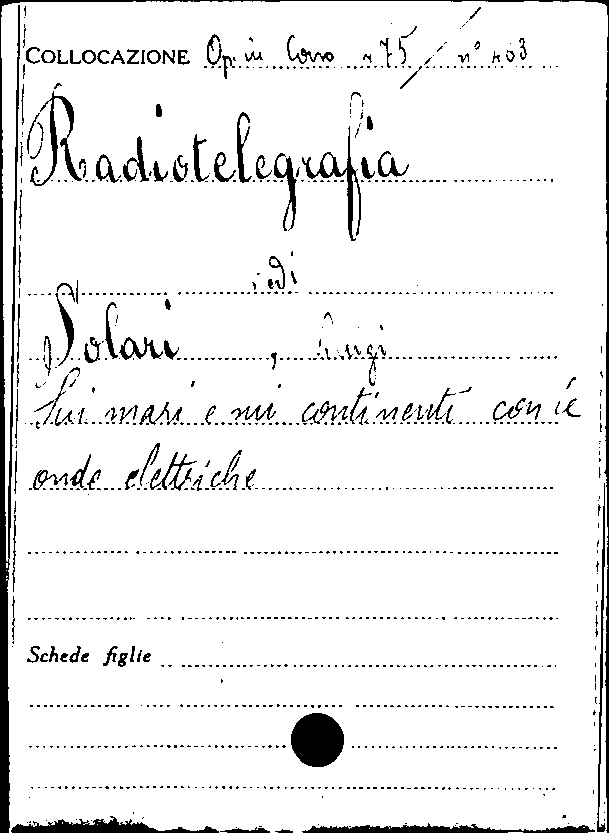 COLLOCAZIONE Op. in Corso 75 / n° 403
Radiotelegrafia
vedi
Solari, Luigi
Sui mari e nei continenti con le
onde elettriche
Schede figlie